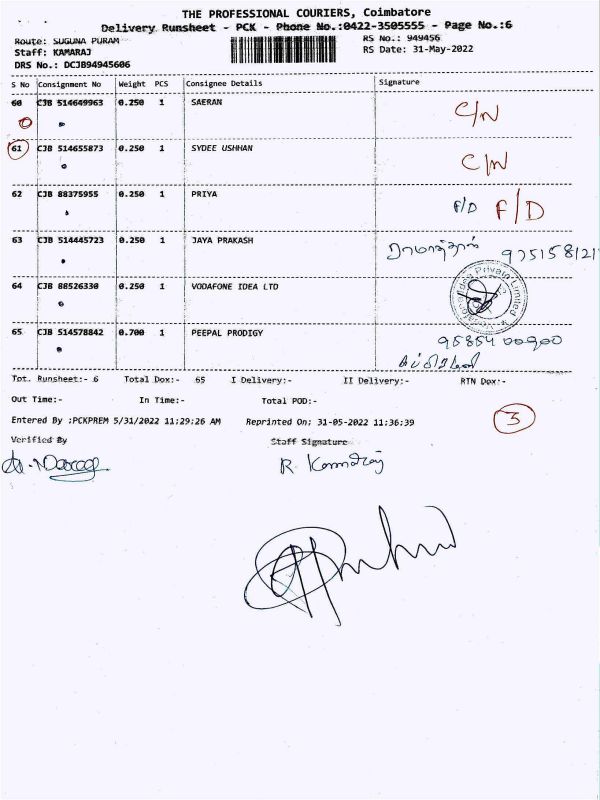 THE PROFESSIONAL COURIERS, Coimbatore
Delivery Runsheet - PCK - Phone No.:0422-3505555 - Page No.:6
Route: SUGUNA PURAM
Staff: KAMARAJ
DRS No.: DCJB94945606
RS No.: 949456
RS Date: 31-May-2022
S No Consignment No Weight PCS Consignee Details Signature
60 CJB 514649963 0.250 1 SAERAN C/N
61 CJB 514655873 0.250 1 SYDEE USHHAN C/N
62 CJB 88375955 0.250 1 PRIYA F/D F/D
63 CJB 514445723 0.250 1 JAYA PRAKASH
64 CJB 88526330 0.250 1 VODAFONE IDEA LTD Private Limited
65 CJB 514578842 0.700 1 PEEPAL PRODIGY
Tot. Runsheet:- 6 Total Dox:- 65 I Delivery:- II Delivery:- RTN Dox:-
Out Time:- In Time:- Total POD:-
Entered By :PCKPREM 5/31/2022 11:29:26 AM Reprinted On: 31-05-2022 11:36:39
3
Verified By Staff Signature
R. Kamaraj